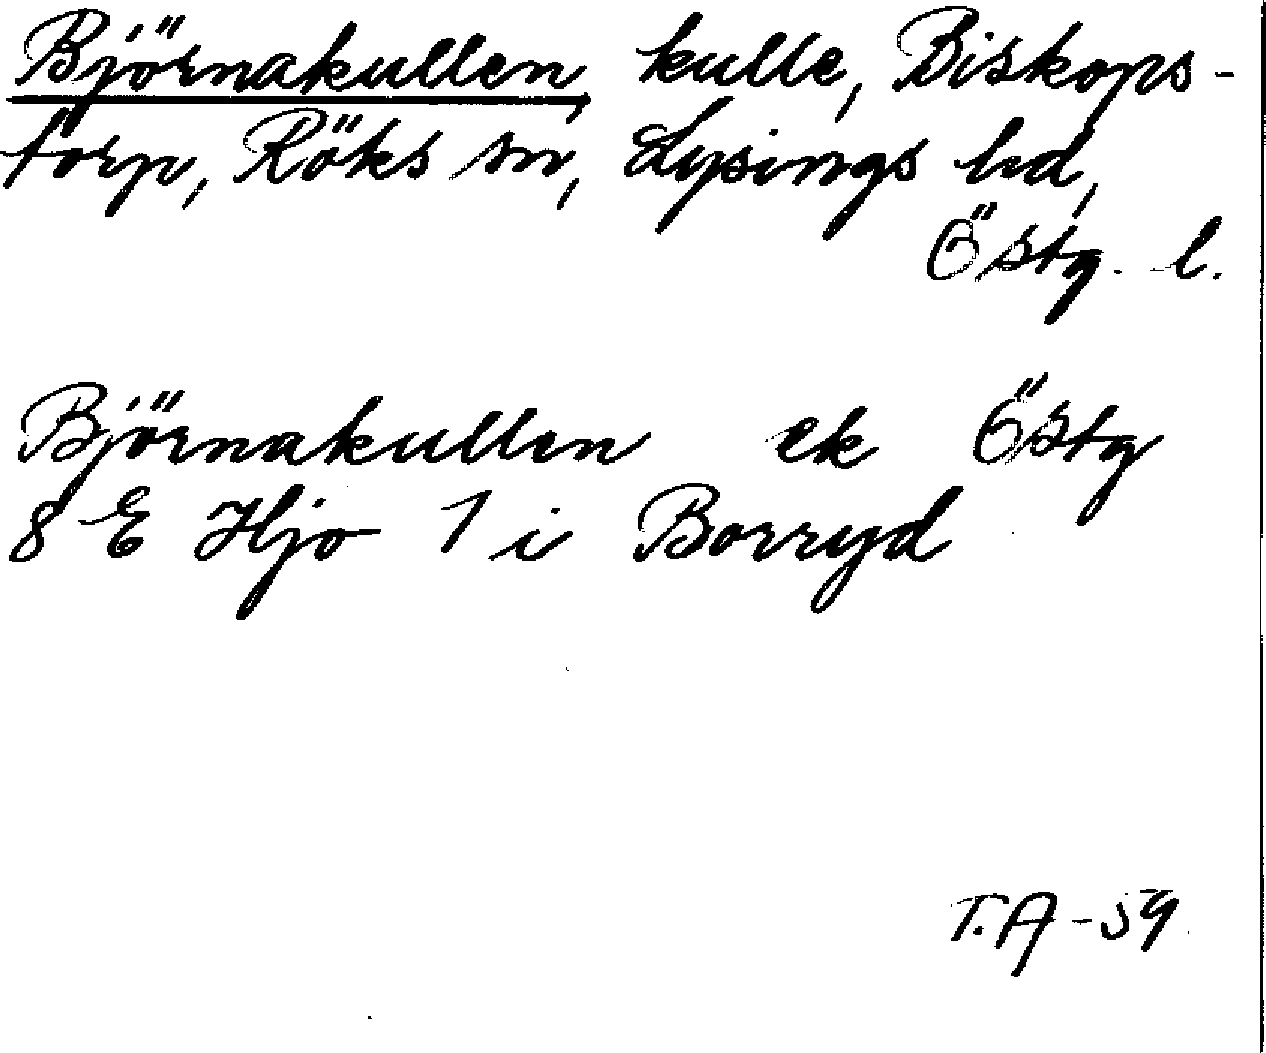 Björnakullen, kulle, Biskops-
torp, Röks sn, Lysings hd,
Östg. l.
Björnakullen ek Östg
8 E Hjo 1 i Borryd
T.A-59